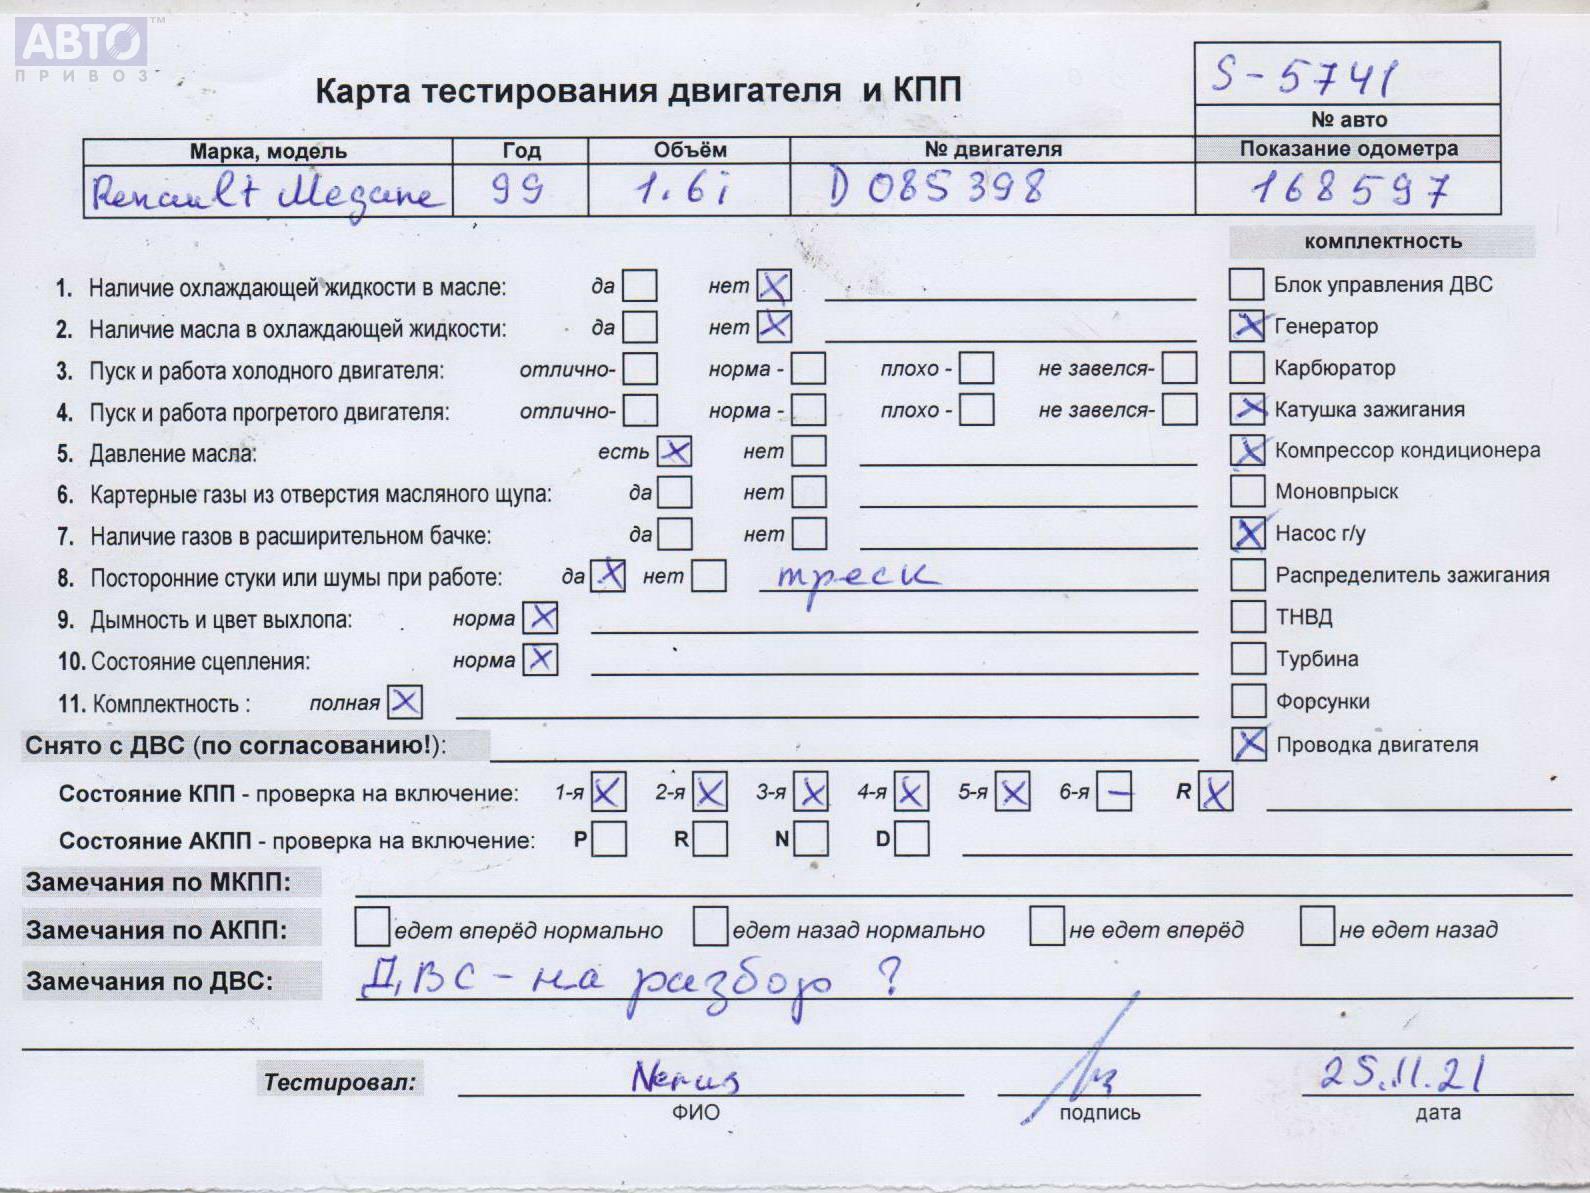 АВТО ™
ПРИВОЗ
Карта тестирования двигателя и КПП
S-5741
№ авто
Марка, модель Год Объём № двигателя Показание одометра
Renault Megane 99 1.6i D085398 168597
комплектность
1. Наличие охлаждающей жидкости в масле: да нет X Блок управления ДВС
2. Наличие масла в охлаждающей жидкости: да нет X X Генератор
3. Пуск и работа холодного двигателя: отлично- норма - плохо - не завелся- Карбюратор
4. Пуск и работа прогретого двигателя: отлично- норма - плохо - не завелся- X Катушка зажигания
5. Давление масла: есть X нет X Компрессор кондиционера
6. Картерные газы из отверстия масляного щупа: да нет Моновпрыск
7. Наличие газов в расширительном бачке: да нет X Насос г/у
8. Посторонние стуки или шумы при работе: да X нет треск Распределитель зажигания
9. Дымность и цвет выхлопа: норма X ТНВД
10. Состояние сцепления: норма X Турбина
11. Комплектность : полная X Форсунки
Снято с ДВС (по согласованию!): X Проводка двигателя
Состояние КПП - проверка на включение: 1-я X 2-я X 3-я X 4-я X 5-я X 6-я – R X
Состояние АКПП - проверка на включение: P R N D
Замечания по МКПП:
Замечания по АКПП: едет вперёд нормально едет назад нормально не едет вперёд не едет назад
Замечания по ДВС: ДВС - на разбор ?
Тестировал: 25.11.21
ФИО подпись дата